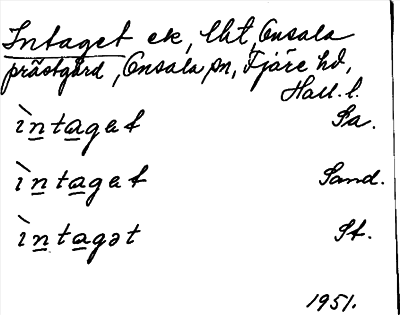 Intaget ek, lht, Onsala
prästgård, Onsala sn, Fjäre hd,
Hall. l.
ìntaget Sa.
ìntaget Sand.
ìntagət St.
1951.